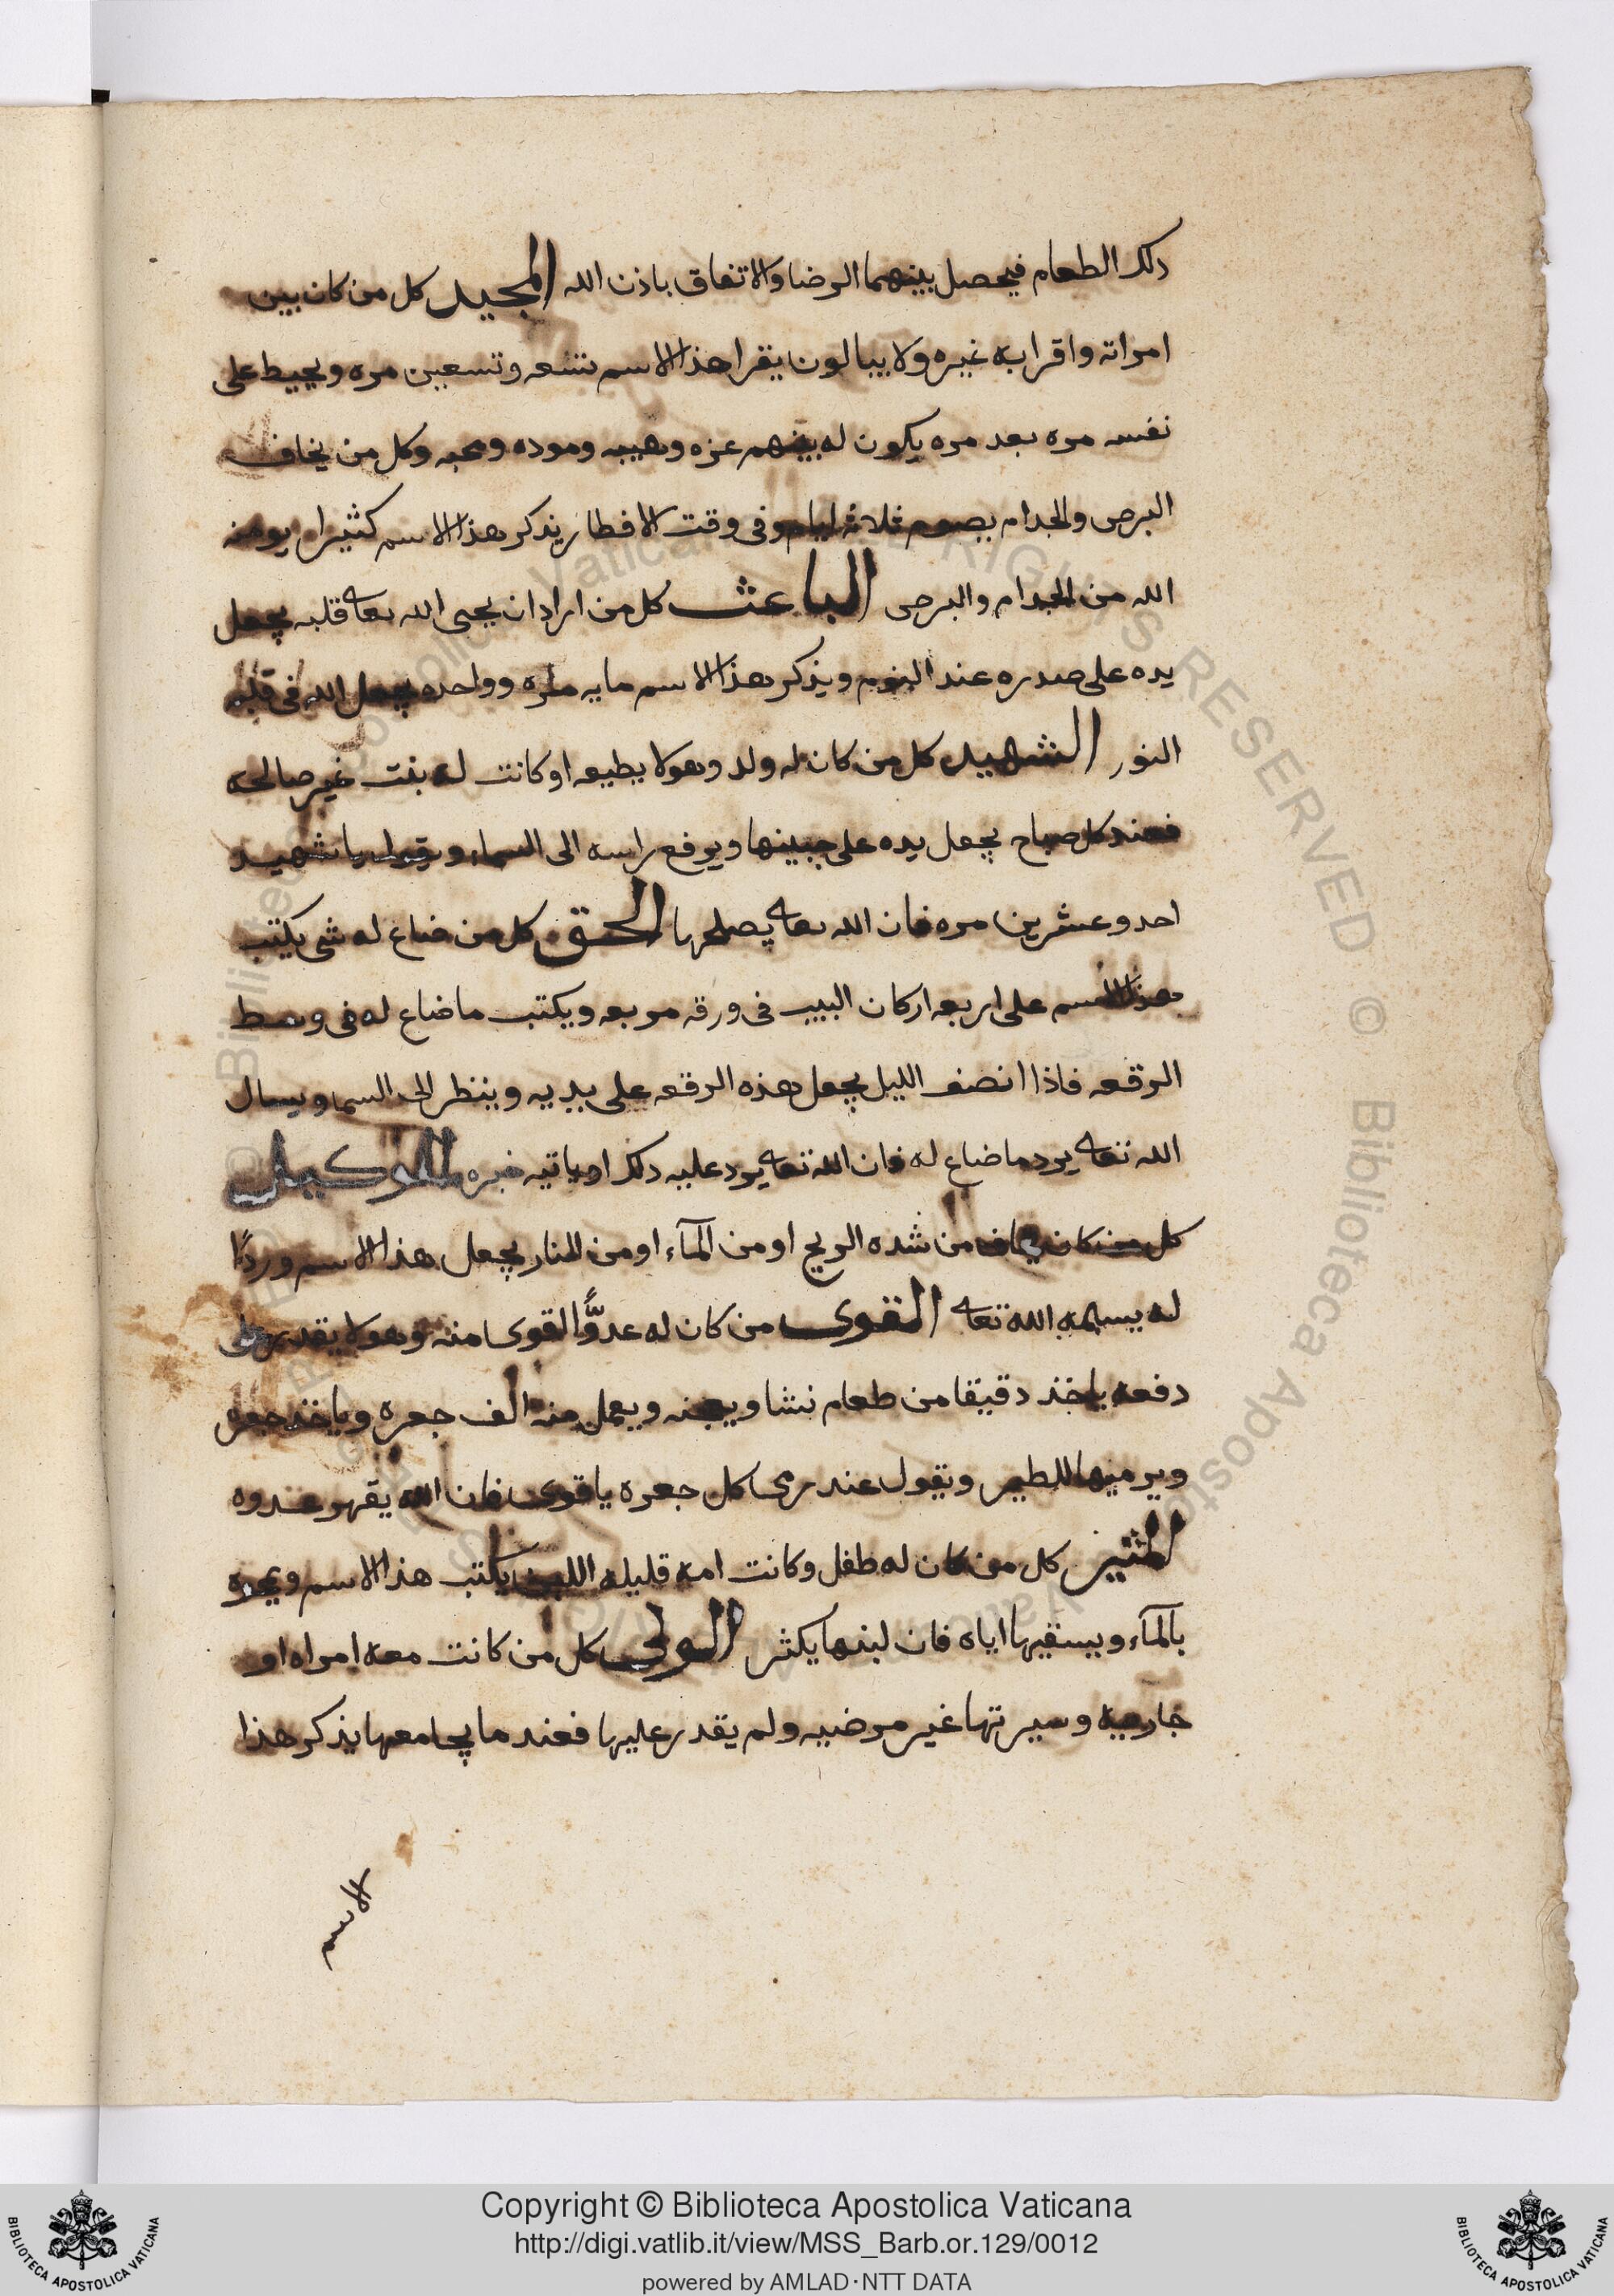 دلك الطعام فيحصل بينهما الرضا والاتفاق باذن الله المجيد كل من كان بين
امراته واقرابه غيره ولا يبالون يقرا هذا الاسم تسعه وتسعين مره ويحيط على
نفسه مره بعد مره يكون له بينهم عزه وهيبه وموده ومحبه وكل من يخاف
البرص والجدام يصوم ثلاثه ايام وفى وقت الافطار يذكر هذا الاسم كثيرا يومنه
الله من الجدام والبرص الباعث كل من اراد ان يحيى الله تعا قلبه يجعل
يده على صدره عند النوم ويذكر هذا الاسم مايه مره وواحده يجعل الله فى قلبه
النور الشهيد كل من كان له ولد وهو لا يطيعه او كانت له بنت غير صالحه
فعند كل صباح يجعل يده على جبينها ويرفع راسه الى السماء ويقول يا شهيد
احد وعشرين مره فان الله تعا يصلحها الحق كل من ضاع له شى يكتب
هذا الاسم على اربعه اركان البيت فى ورقه مربعه ويكتب ما ضاع له فى وسط
الرقعه فاذا انصف الليل يجعل هذه الرقعه على يديه وينظر الى السما ويسال
الله تعا يرد ما ضاع له فان الله تعا يرد عليه دلك او ياتيه خبره الوكيل
كل من كان يخاف من شده الريح او من المآء او من النار يجعل هذا الاسم وردًا
له يسلمه الله تعا القوى من كان له عدوًّا القوى منه وهو لا يقدر على
دفعه ياخذ دقيقا من طعام نشا ويعجنه ويعمل منه الف جعره وياخذ جعره
ويرميها للطير ويقول عند رمى كل جعره يا قوى فان الله يقهر عدوه
المتين كل من كان له طفل وكانت امه قليله اللبن يكتب هذا الاسم ويمحوه
بالمآء ويسقيها اياه فان لبنها يكثر الولى كل من كانت معه امراه او
جاريه وسيرتها غير مرضيه ولم يقدر عليها فعند ما يجامعها يذكر هذا
الاسم
Copyright © Biblioteca Apostolica Vaticana
http://digi.vatlib.it/view/MSS_Barb.or.129/0012
powered by AMLAD·NTT DATA